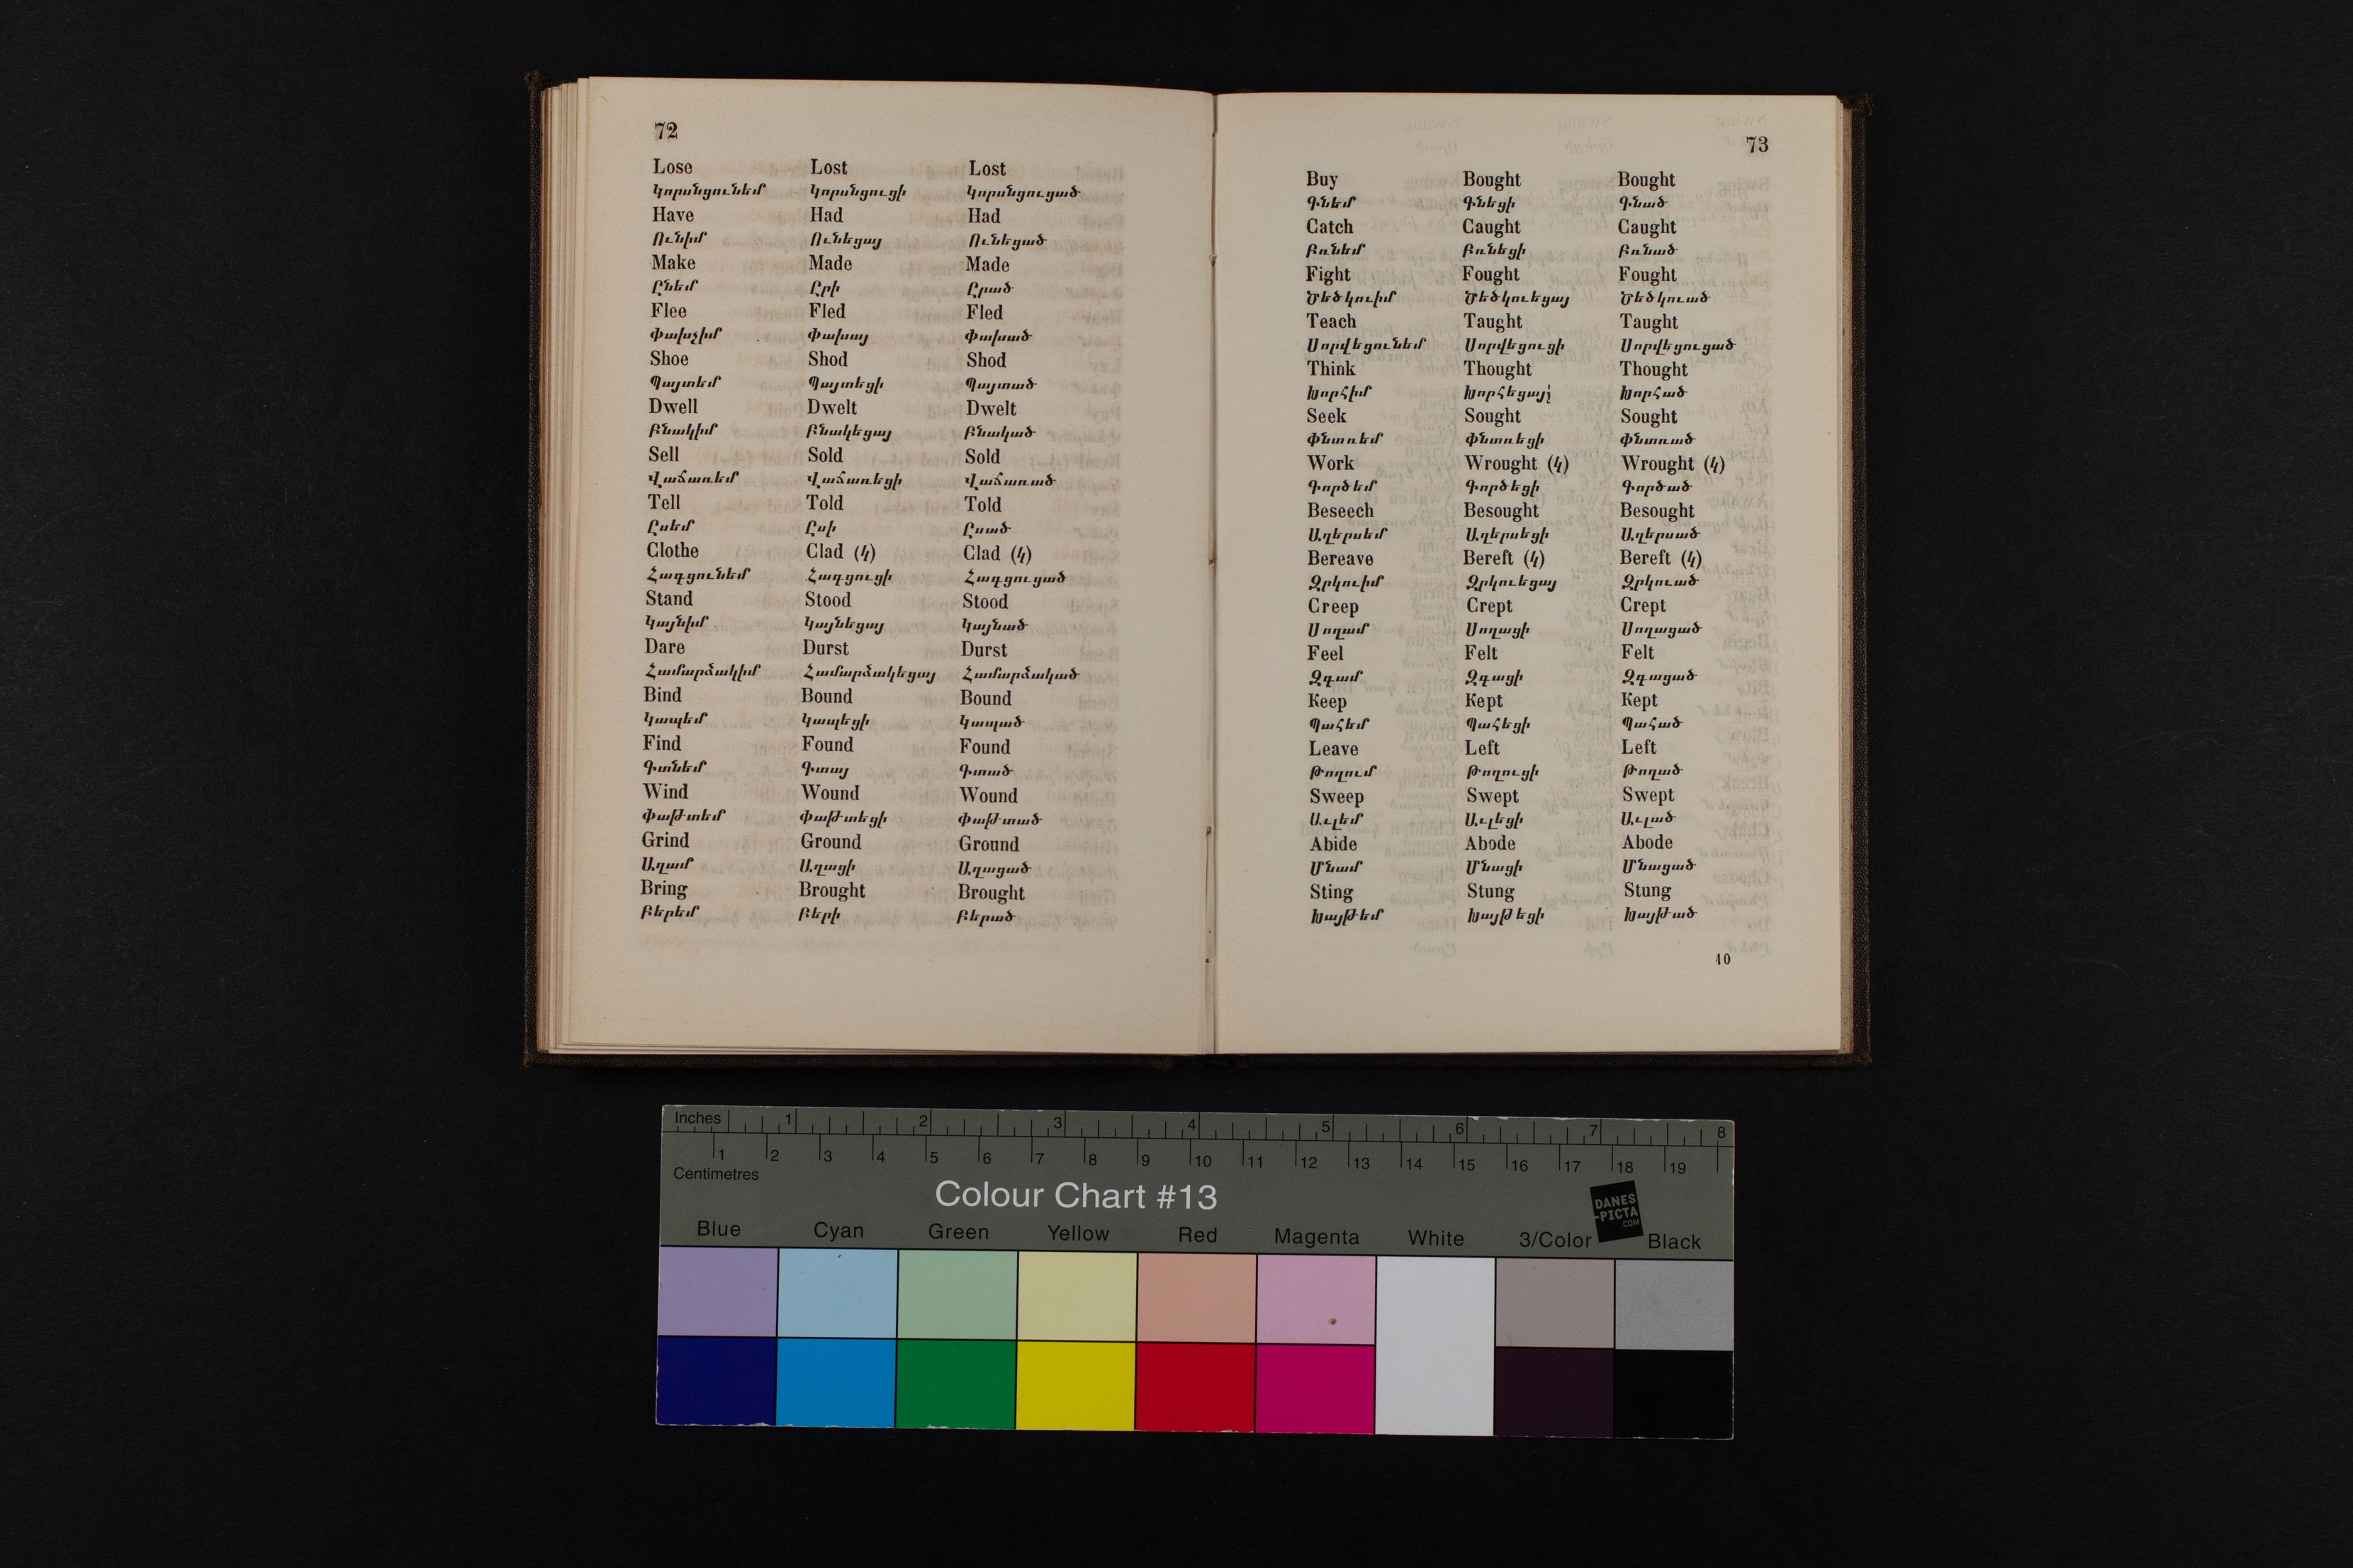 72
Lose Lost Lost
Կորսնցունեմ Կորսնցուցի Կորսնցուցած
Have Had Had
Ունիմ Ունեցայ Ունեցած
Make Made Made
Ընեմ Ըրի Ըրած
Flee Fled Fled
Փախչիմ Փախսայ Փախսած
Shoe Shod Shod
Պայտեմ Պայտեցի Պայտած
Dwell Dwelt Dwelt
Բնակիմ Բնակեցայ Բնակած
Sell Sold Sold
Վաճառեմ Վաճառեցի Վաճառած
Tell Told Told
Ըսեմ Ըսի Ըսած
Clothe Clad (կ) Clad (կ)
Հագցունեմ Հագցուցի Հագցուցած
Stand Stood Stood
Կայնիմ Կայնեցայ Կայնած
Dare Durst Durst
Համարձակիմ Համարձակեցայ Համարձակած
Bind Bound Bound
Կապեմ Կապեցի Կապած
Find Found Found
Գտնեմ Գտայ Գտած
Wind Wound Wound
Փաթտեմ Փաթտեցի Փաթտած
Grind Ground Ground
Աղամ Աղացի Աղացած
Bring Brought Brought
Բերեմ Բերի Բերած
73
Buy Bought Bought
Գնեմ Գնեցի Գնած
Catch Caught Caught
Բռնեմ Բռնեցի Բռնած
Fight Fought Fought
Ծեծկուիմ Ծեծկուեցայ Ծեծկուած
Teach Taught Taught
Սորվեցունեմ Սորվեցուցի Սորվեցուցած
Think Thought Thought
Խորհիմ Խորհեցայ Խորհած
Seek Sought Sought
Փնտռեմ Փնտռեցի Փնտռած
Work Wrought (կ) Wrought (կ)
Գործեմ Գործեցի Գործած
Beseech Besought Besought
Աղերսեմ Աղերսեցի Աղերսած
Bereave Bereft (կ) Bereft (կ)
Զրկուիմ Զրկուեցայ Զրկուած
Creep Crept Crept
Սողամ Սողացի Սողացած
Feel Felt Felt
Զգամ Զգացի Զգացած
Keep Kept Kept
Պահեմ Պահեցի Պահած
Leave Left Left
Թողում Թողուցի Թողած
Sweep Swept Swept
Աւլեմ Աւլեցի Աւլած
Abide Abode Abode
Մնամ Մնացի Մնացած
Sting Stung Stung
Խայթեմ Խայթեցի Խայթած
10
Inches 1 2 3 4 5 6 7 8
1 2 3 4 5 6 7 8 9 10 11 12 13 14 15 16 17 18 19
Centimetres
Colour Chart #13
DANES
-PICTA
.COM
Blue Cyan Green Yellow Red Magenta White 3/Color Black